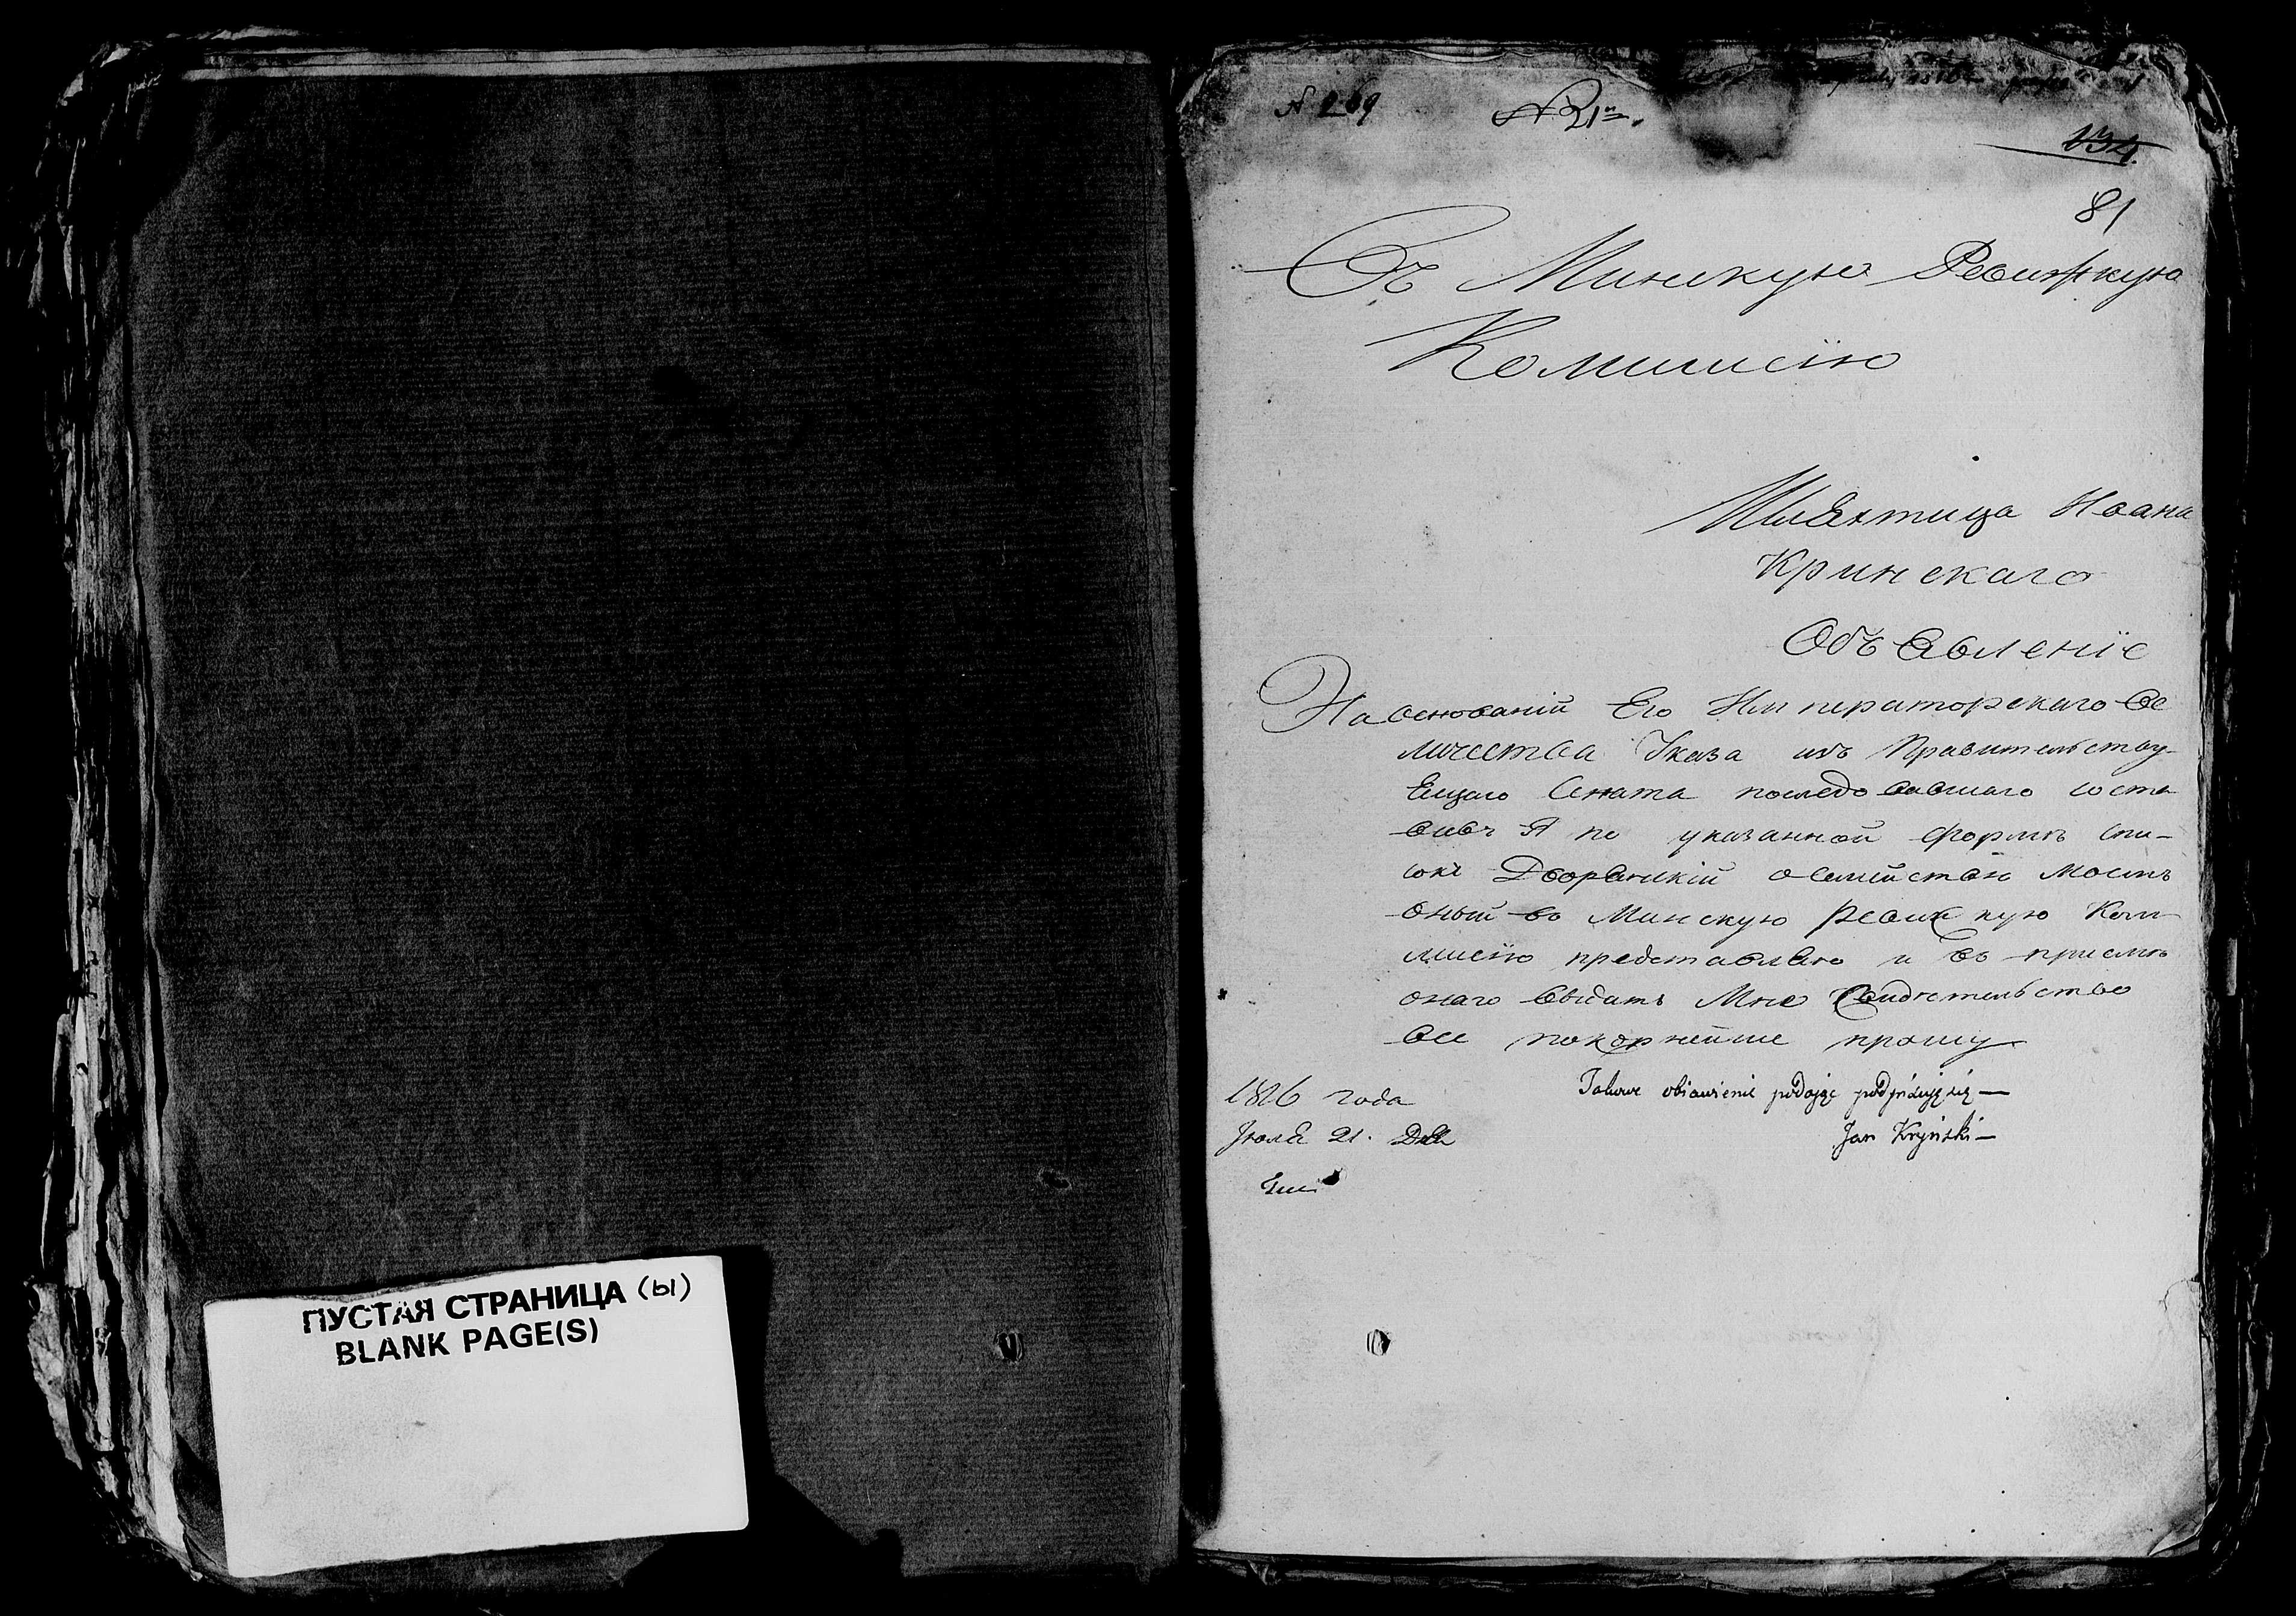 ПУСТАЯ СТРАНИЦА (ы)
BLANK PAGE(S)
№ 269
№ 21
134
81
Въ Минскую Ревижкую
Комишсію
Шляхтица Ивана
Кринскаго
Объявленіе
На основаніи Его Императорскаго Ве
личества Указа изъ Правительству-
ещаго Сената последовавшаго соста
вивъ я по указанной форме спи-
сокъ Дворянскій о семействе моемъ
оный во Минскую Ревижкую Ком-
мисію представляю и въ приеме
онаго выдать Мне Свидетельство
все покорнейше прошу
1816 года
Takowe obiawienie podaiąc podpisuię się —
Июля 21. Дня
Jan Kryński —